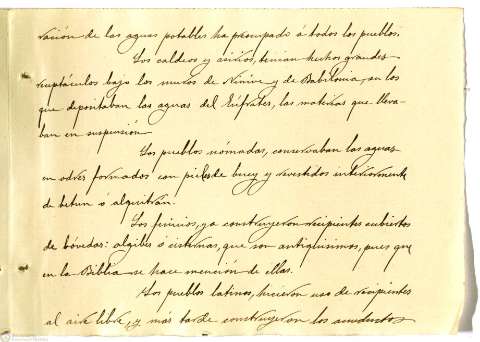 ración de las aguas potables ha preocupado á todos los pueblos.
Los caldeos y asirios, tenian hechos grandes
receptáculos bajo los muros de Ninive y de Babilonia, en los
que depositaban las aguas del Eúfrates, las materias que lleva-
ban en suspensión.
Los pueblos nómadas, conservaban las aguas
en odres formados con pieles de buey y revestidos interiormente
de betun ó alquitrán.
Los fenicios, ya construyeron recipientes cubiertos
de bóvedas: algibes ó cisternas, que son antiquisimos, pues que
en la Biblia se hace mención de ellas.
Los pueblos latinos, hicieron uso de recipientes
al aire libre, y más tarde construyeron los acueductos